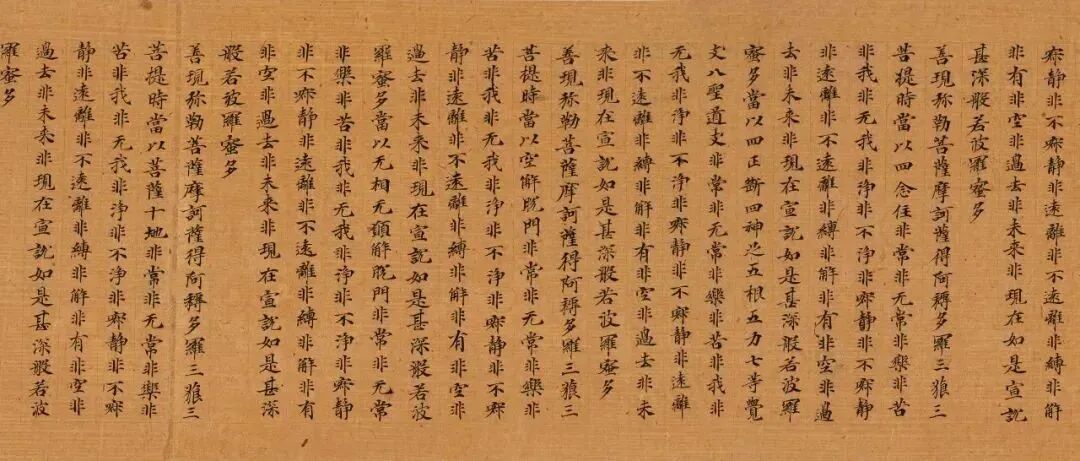 寂静非不寂静非遠離非不遠離非縛非解
非有非空非過去非未来非現在如是宣説
甚深般若波羅蜜多
善現弥勒菩薩摩訶薩得阿耨多羅三藐三
菩提時當以四念住非常非无常非樂非苦
非我非无我非浄非不浄非寂静非不寂静
非遠離非不遠離非縛非解非有非空非過
去非未来非現在宣説如是甚深般若波羅
蜜多當以四正断四神足五根五力七等覺
支八聖道支非常非无常非樂非苦非我非
无我非浄非不浄非寂静非不寂静非遠離
非不遠離非縛非解非有非空非過去非未
来非現在宣説如是甚深般若波羅蜜多
善現弥勒菩薩摩訶薩得阿耨多羅三藐三
菩提時當以空解脱門非常非无常非樂非
苦非我非无我非浄非不浄非寂静非不寂
静非遠離非不遠離非縛非解非有非空非
過去非未来非現在宣説如是甚深般若波
羅蜜多當以无相无願解脱門非常非无常
非樂非苦非我非无我非浄非不浄非寂静
非不寂静非遠離非不遠離非縛非解非有
非空非過去非未来非現在宣説如是甚深
般若波羅蜜多
善現弥勒菩薩摩訶薩得阿耨多羅三藐三
菩提時當以菩薩十地非常非无常非樂非
苦非我非无我非浄非不浄非寂静非不寂
静非遠離非不遠離非縛非解非有非空非
過去非未来非現在宣説如是甚深般若波
羅蜜多